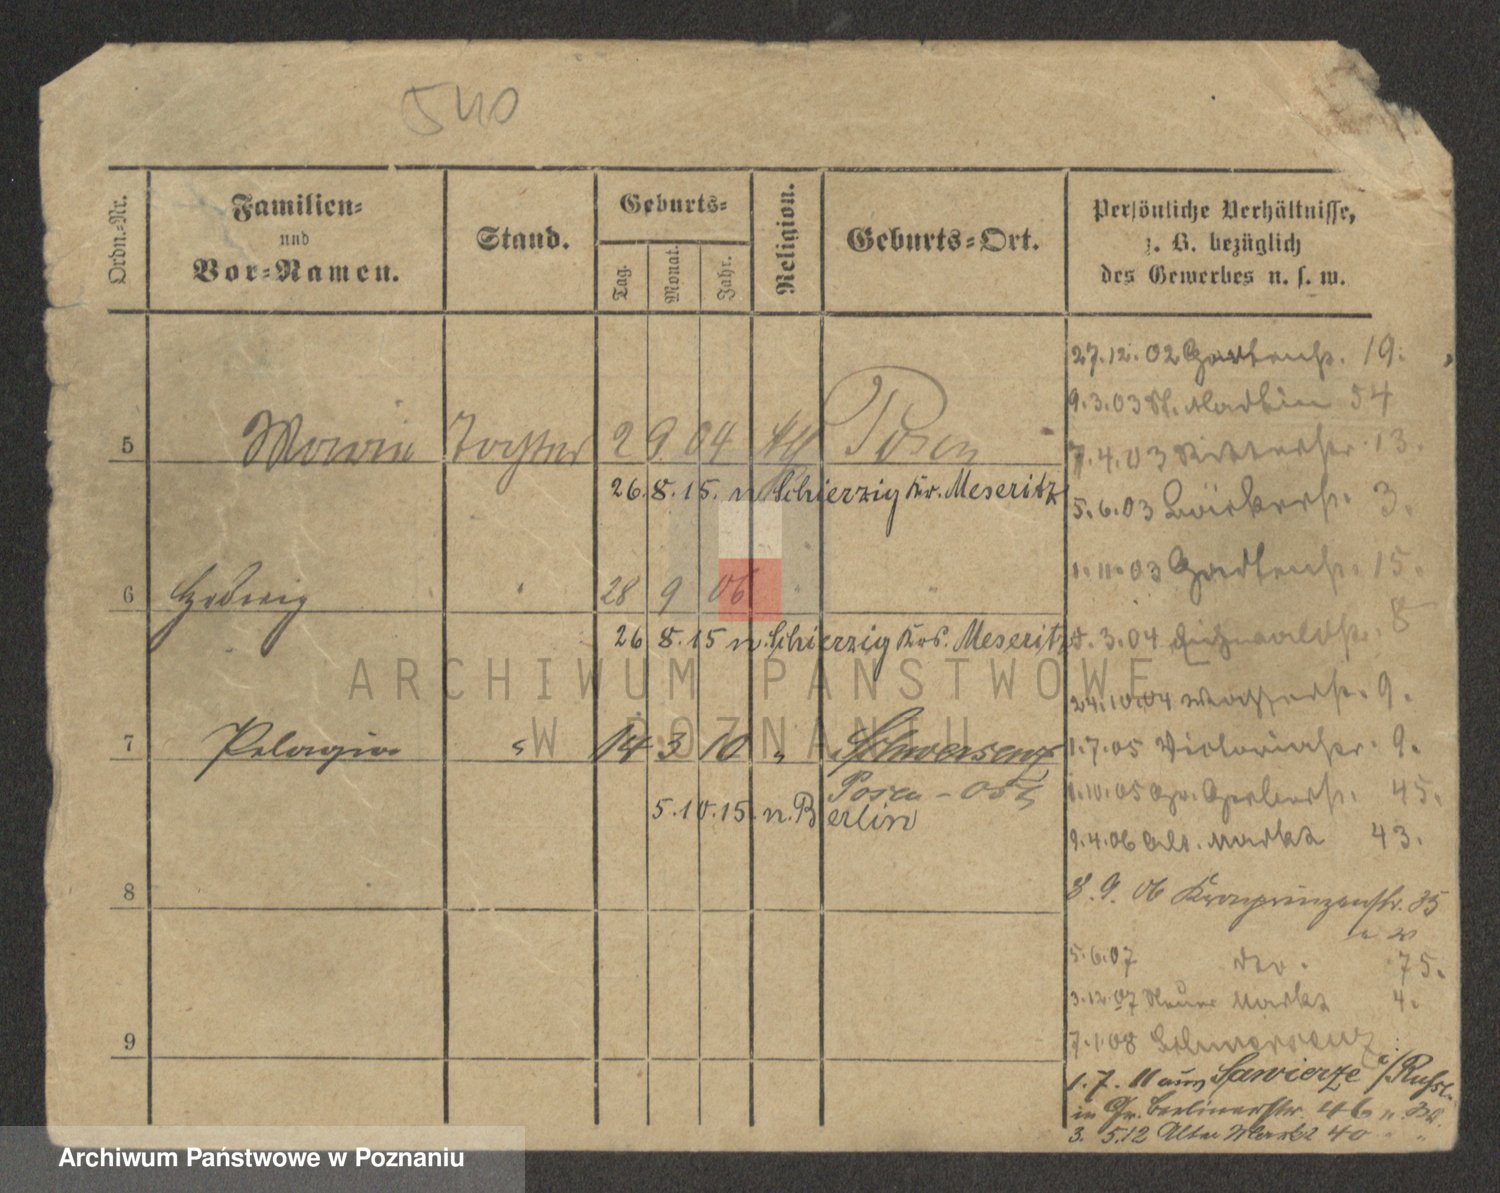 540
Ordn.-Nr.
Familien-
und
Vor-Namen.
Stand.
Geburts-
Tag.
Monat.
Jahr.
Religion.
Geburts-Ort.
Persönliche Verhältnisse,
z. B. bezüglich
des Gewerbes u. s. w.
5 Maria Tochter 2 9 04 Posen
26.8.15. n Schierzig Kr. Meseritz
6 Hedwig " 28 9 06 " "
26 8.15 n. Schierzig Krs. Meseritz
7 Pelagia " 14 3 10 " Schwersenz
Posen - Ost
5.10.15. n. Berlin
8
9
27.12.02 Gartenstr. 19.
9.3.03 St. Martin 54
7.4.03 Ritterstr 13.
5.6.03 Bäckerstr. 3.
1.11.03 Gartenstr. 15.
3.04 Eichwaldstr. 8
24.10.04 9.
1.7.05 Victoriastr. 9.
1.10.05 Gr. Gerberstr. 45.
9.4.06 Alt. Markt 43.
8.9.06 Kronprinzenstr. 35
5.6.07 dto. 75.
3.12.07 Neuer Markt 4.
7.1.08 Schwersenz
1.7.11 aus Sawierze /Russl.
in Gr. Berlinerstr. 46
3. 5.12 Alter Markt 40
ARCHIWUM PAŃSTWOWE
W POZNANIU
Archiwum Państwowe w Poznaniu